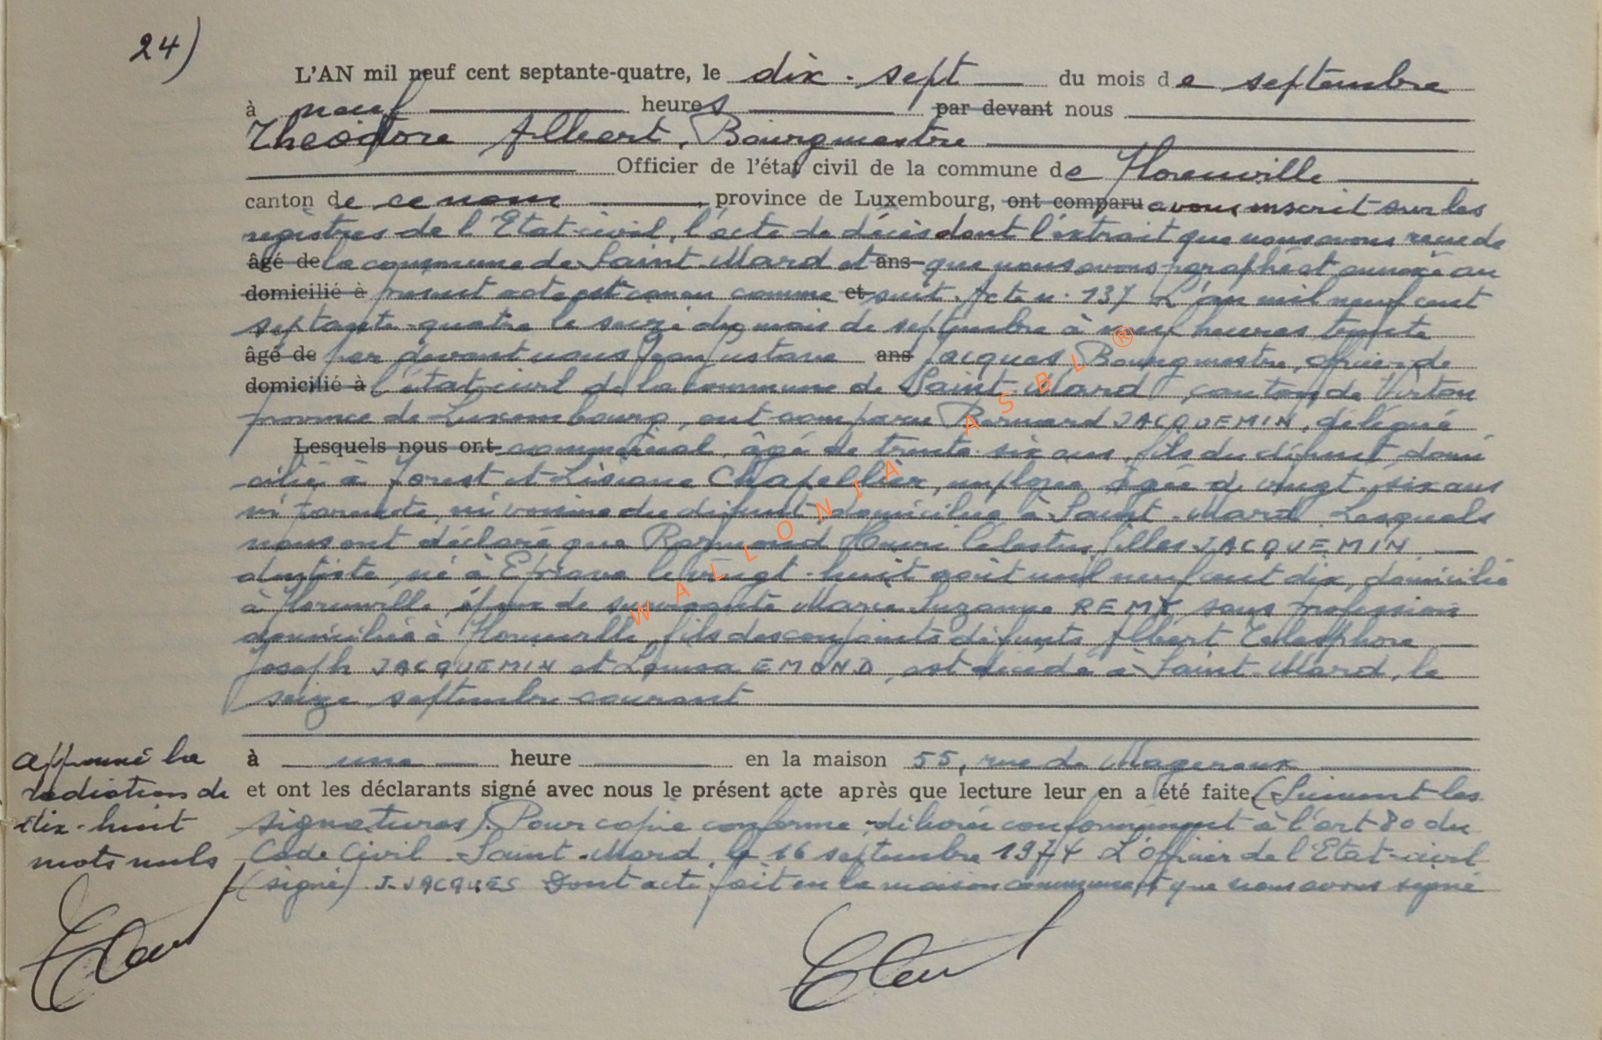 24)
L'AN mil neuf cent septante-quatre, le dix-sept du mois de septembre
à neuf heures par devant nous
Théodore Albert, Bourgmestre
Officier de l'état civil de la commune de Florenville
canton de ce nom, province de Luxembourg, ont comparu avons inscrit sur les
registres de l'Etat-civil, l'acte de décès dont l'extrait que nous avons reçu de
âgé de la commune de Saint Mard et ans que nous avons paraphé et annexé au
domicilié à présent acte est conçu comme et suit. Acte n. 137 L'an mil neuf cent
septante-quatre le seize du mois de septembre à neuf heures trente
âgé de par devant nous Jean Gustave ans Jacques Bourgmestre, officier de
domicilié à l'état-civil de la commune de Saint-Mard, canton de Virton
province de Luxembourg, ont comparu Bernard JACQUEMIN, délégué
Lesquels nous ont commercial, âgé de trente-six ans, fils du défunt, domi
cilié à Forest et Lisiane Chapellier, employée âgée de vingt-six ans
ni parente, ni voisine du défunt domiciliée à Saint-Mard. Lesquels
nous ont déclaré que Raymond Henri Célestin Gilles JACQUEMIN
dentiste, né à Eprave le vingt-huit août mil neuf cent dix, domicilié
à Florenville, époux de survivante Marie Suzanne REMY sans profession
domiciliée à Florenville, fils des conjoints défunts Albert Télesphore
Joseph JACQUEMIN et Louisa EMOND, est décédé à Saint-Mard, le
seize septembre courant
à une heure en la maison 55, rue de Mageroux
et ont les déclarants signé avec nous le présent acte après que lecture leur en a été faite (Suivent les
signatures). Pour copie conforme délivrée conformément à l'art 80 du
Code Civil. Saint-Mard, le 16 septembre 1974 L'Officier de l'Etat-civil
(signé) J. JACQUES Dont acte fait en la maison communale que nous avons signé
approuvé la
radiation de
dix-huit
mots nuls
WALLONIA ASBL ®